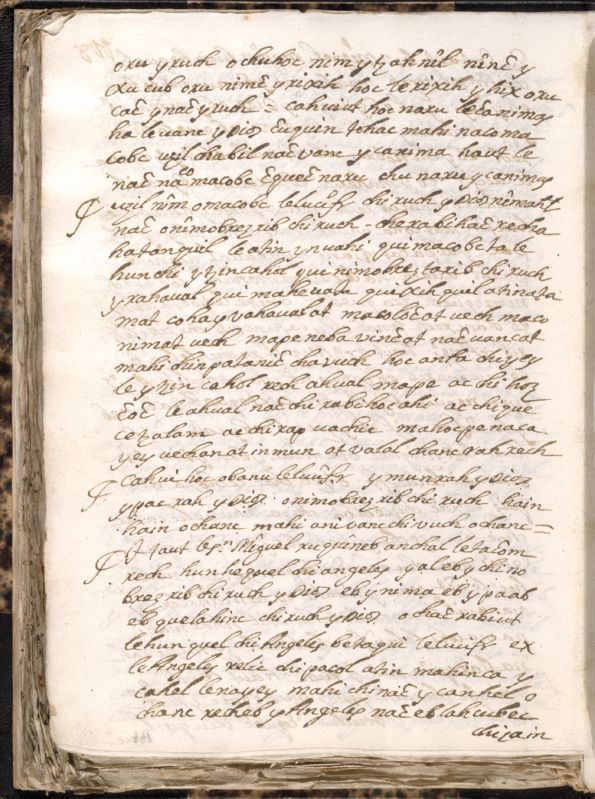 oxu y ruch o chu hoc nim y tzahnil nînc̄ y
xu cub oxu nimc̄ y rixih hoc le rixih y hix oxu
cac̄ y nac̄ y ruch = cahuiut hoc naxu le c̄a nimas
ha le vanc y Dios c̄u quin tohac mahi naloma
cobc uzil chabil nac̄ vanc y canima haut le
nac̄ naco macobc c̄quec̄ naxu chu naxu y canimas
uzil nîm o macobc le lucifr chi ruch y Dios
nac̄ o nîmobrezrib chi ruch - che rabi hac̄ recha
hatanquil le atin y nuahi qui macobc ta le
hun chi y tzin cahol qui nimobrez ta rib chi ruch
y rahaual qui mahevata quixih quel atinata
mat coha y vahaual at macoloc̄ at vech maco
nimat vech mape neba vinc̄ at nac̄ van cat
mahi chinpatanic̄ cha vuch hoc anta chi yey
le y tzin cahol rech ahval mape ac chi hoz
c̄oc̄ le ahval nac̄ chi rabi hoc ahi ac chi que
ce tzalam ac chi rap vachic mahoc pe naca
yey vechan at inmun at valal chanc vah rech
cahui hoc obanu le lucifr y mun rah y Dios
y pac rah y Dios o nimobrez rib chi ruch hain
hain o chanc mahi ani vanc chi vuch o chanc =
Haut le Sn Miguel xuquineb anchal le talom
rech hunhequel chi angeles y aleb y chi no
brez rib chi ruch y Dios eb y nima eb y paab
eb quelahinc chi ruch y Dios o chac̄ rabiut
le hunquel chi Angeles betaqui lelucifr ex
le Angeles relic chi pacol atin mahinca y
cahol le nayey mahi chi nac̄ y canhel o
chanc recheb y Angeles nac̄ eb lahcubec
chi jain